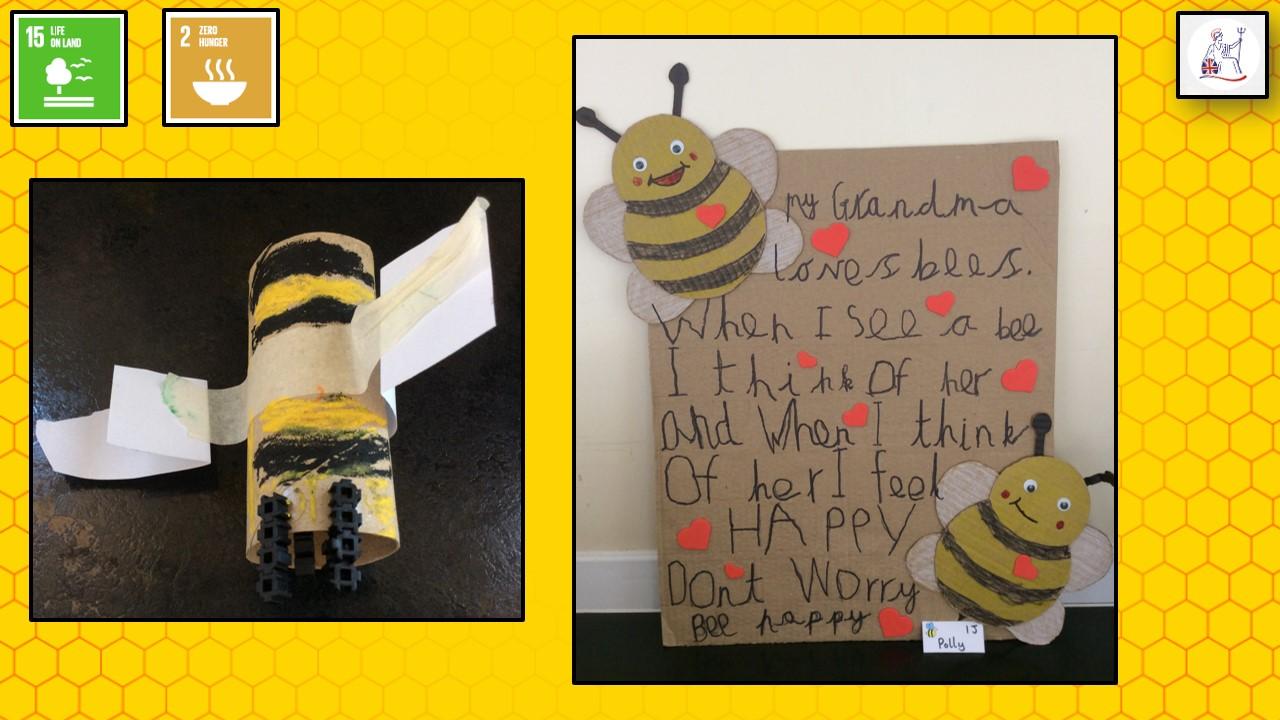 15 LIFE
ON LAND
2 ZERO
HUNGER
my Grandma
loves bees.
When I see a bee
I think Of her
and When I think
Of her I feel
HAPPY
DOnt WOrry
Bee happy
1J
Polly